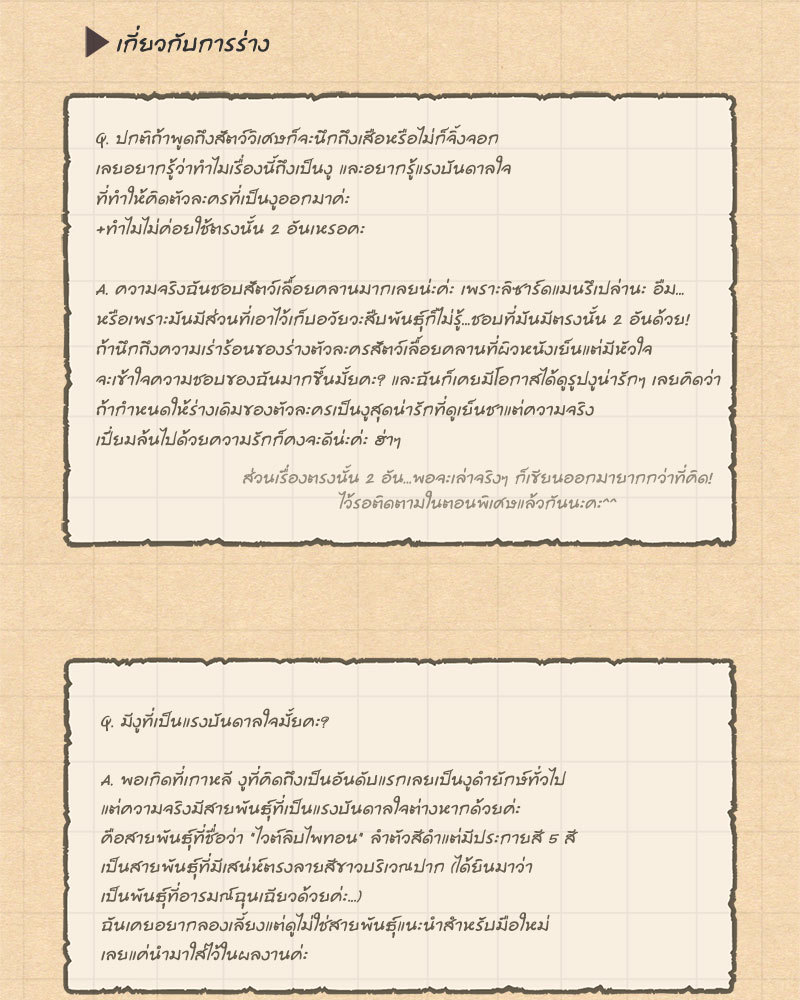 เกี่ยวกับการร่าง
Q. ปกติถ้าพูดถึงสัตว์วิเศษก็จะนึกถึงเสือหรือไม่ก็จิ้งจอก
เลยอยากรู้ว่าทำไมเรื่องนี้ถึงเป็นงู และอยากรู้แรงบันดาลใจ
ที่ทำให้คิดตัวละครที่เป็นงูออกมาค่ะ
+ทำไมไม่ค่อยใช้ตรงนั้น 2 อันเหรอคะ
A. ความจริงฉันชอบสัตว์เลื้อยคลานมากเลยน่ะค่ะ เพราะลิซาร์ดแมนรึเปล่านะ อืม...
หรือเพราะมันมีส่วนที่เอาไว้เก็บอวัยวะสืบพันธุ์ก็ไม่รู้...ชอบที่มันมีตรงนั้น 2 อันด้วย!
ถ้านึกถึงความเร่าร้อนของร่างตัวละครสัตว์เลื้อยคลานที่ผิวหนังเย็นแต่มีหัวใจ
จะเข้าใจความชอบของฉันมากขึ้นมั้ยคะ? และฉันก็เคยมีโอกาสได้ดูรูปงูน่ารักๆ เลยคิดว่า
ถ้ากำหนดให้ร่างเดิมของตัวละครเป็นงูสุดน่ารักที่ดูเย็นชาแต่ความจริง
เปี่ยมล้นไปด้วยความรักก็คงจะดีน่ะค่ะ ฮ่าๆ
ส่วนเรื่องตรงนั้น 2 อัน...พอจะเล่าจริงๆ ก็เขียนออกมายากกว่าที่คิด!
ไว้รอติดตามในตอนพิเศษแล้วกันนะคะ^^
Q. มีงูที่เป็นแรงบันดาลใจมั้ยคะ?
A. พอเกิดที่เกาหลี งูที่คิดถึงเป็นอันดับแรกเลยเป็นงูดำยักษ์ทั่วไป
แต่ความจริงมีสายพันธุ์ที่เป็นแรงบันดาลใจต่างหากด้วยค่ะ
คือสายพันธุ์ที่ชื่อว่า "ไวต์ลิบไพทอน" ลำตัวสีดำแต่มีประกายสี 5 สี
เป็นสายพันธุ์ที่มีเสน่ห์ตรงลายสีขาวบริเวณปาก (ได้ยินมาว่า
เป็นพันธุ์ที่อารมณ์ฉุนเฉียวด้วยค่ะ...)
ฉันเคยอยากลองเลี้ยงแต่ดูไม่ใช่สายพันธุ์แนะนำสำหรับมือใหม่
เลยแค่นำมาใส่ไว้ในผลงานค่ะ